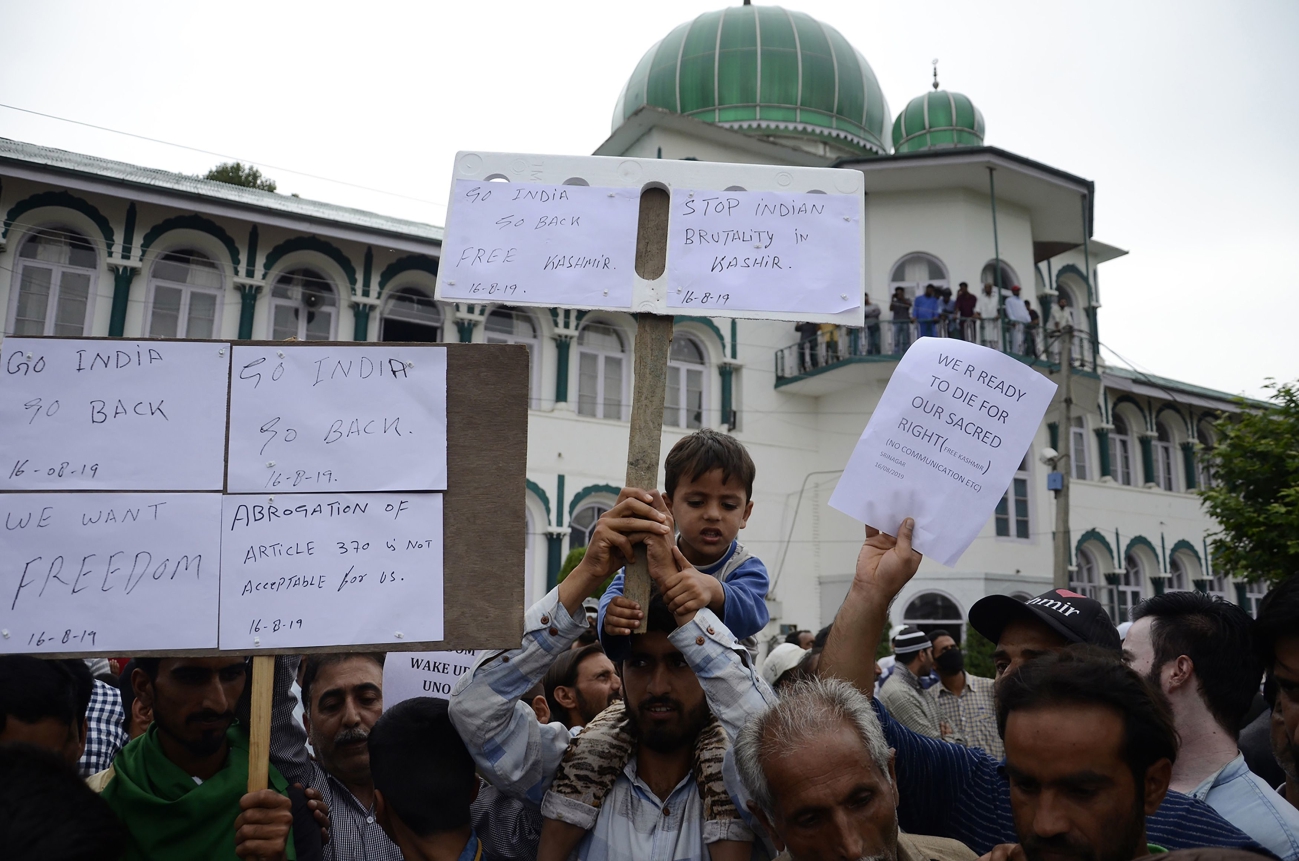 GO INDIA
GO BACK
FREE KASHMIR.
16-8-19.
STOP INDIAN
BRUTALITY in
KASHIR.
16-8-19
GO INDIA
GO BACK
16-08-19
GO INDIA
GO BACK.
16-8-19.
WE WANT
FREEDOM
16-8-19
ABROGATION OF
ARTICLE 370 is NOT
Acceptable for us.
16-8-19
WE R READY
TO DIE FOR
OUR SACRED
RIGHT(FREE KASHMIR)
(NO COMMUNICATION ETC)
SRINAGAR
16/08/2019
WAKE UP
UNO